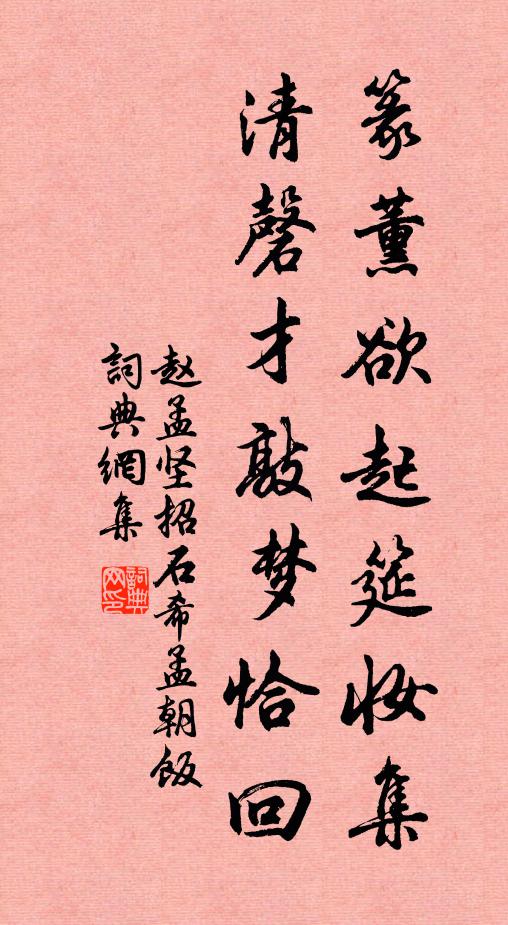 篆薰欲起筵妆集
清磬才敲梦恰回
赵孟坚招石希孟朝饭
詞典網集
詞典網印